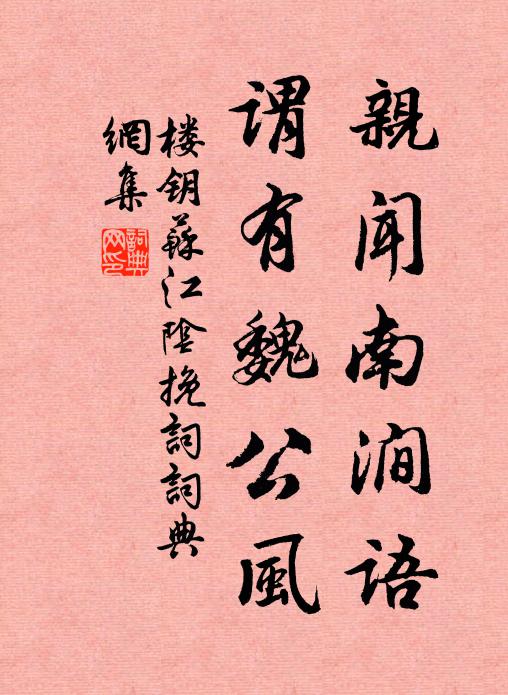 親闻南涧语
谓有魏公風
楼钥蘇江陰挽詞詞典
網集
詞典網印